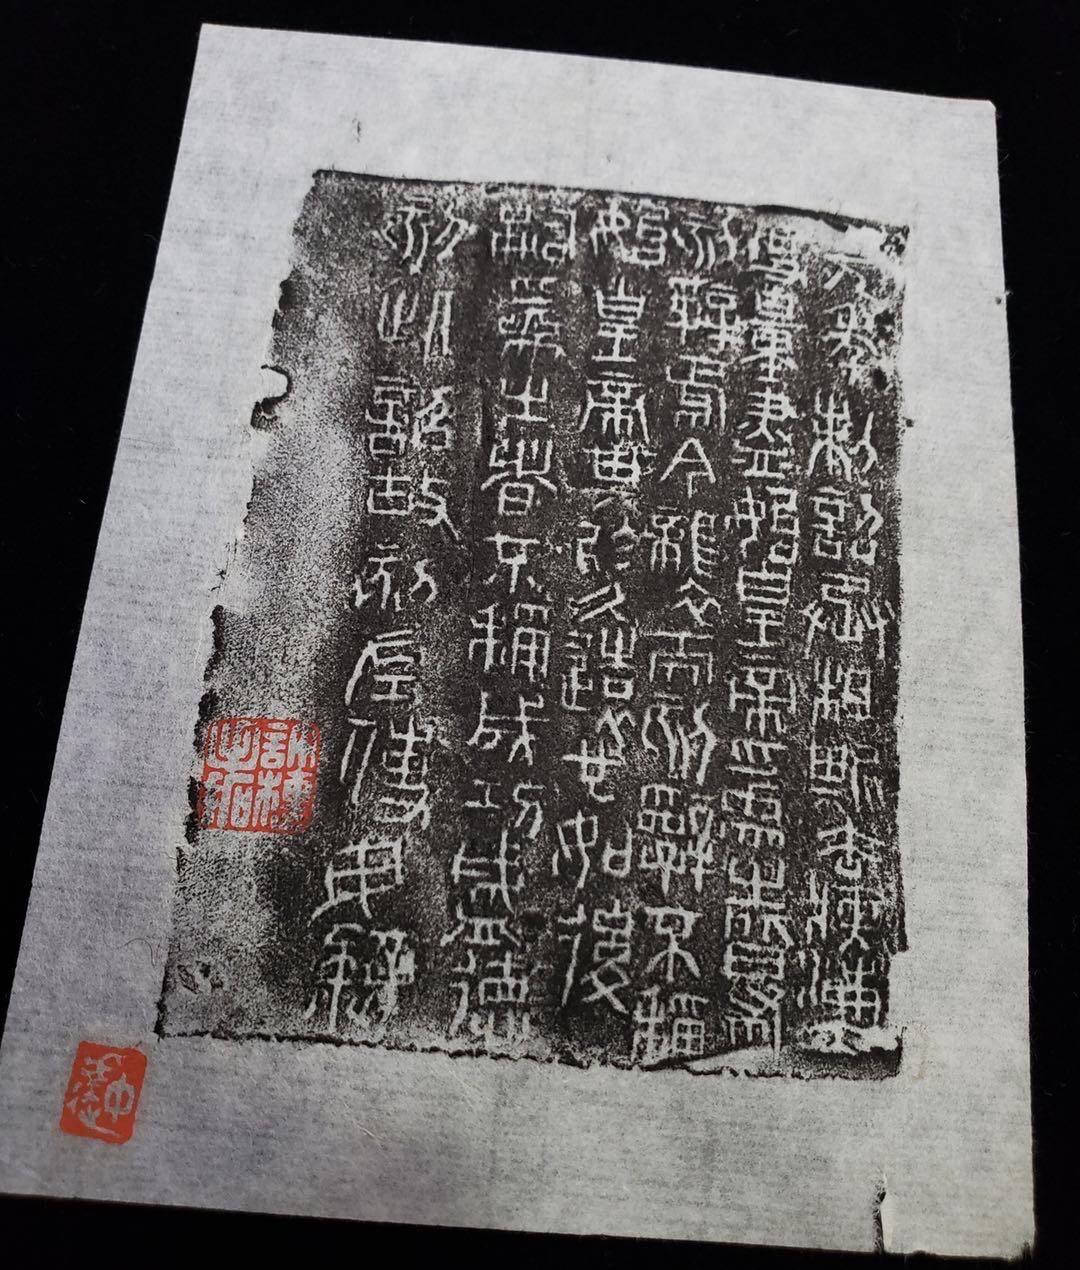 元年制詔丞相斯去疾法
度量盡始皇帝為之皆有
刻辭焉今襲號而刻辭不稱
始皇帝其於久遠也如後
嗣為之者不稱成功盛德
刻此詔故刻左使毋疑